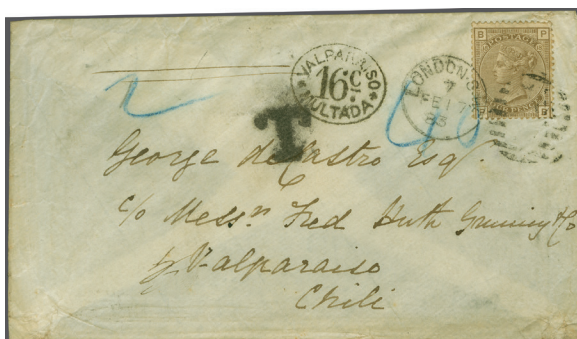 B P
POSTAGE
VALPARAISO
16 c.
MULTADA
LONDON
7
FE 17
83
T
George de Castro Esq.
c/o Messrs Fred Huth Gruning & Co
Valparaiso
Chili